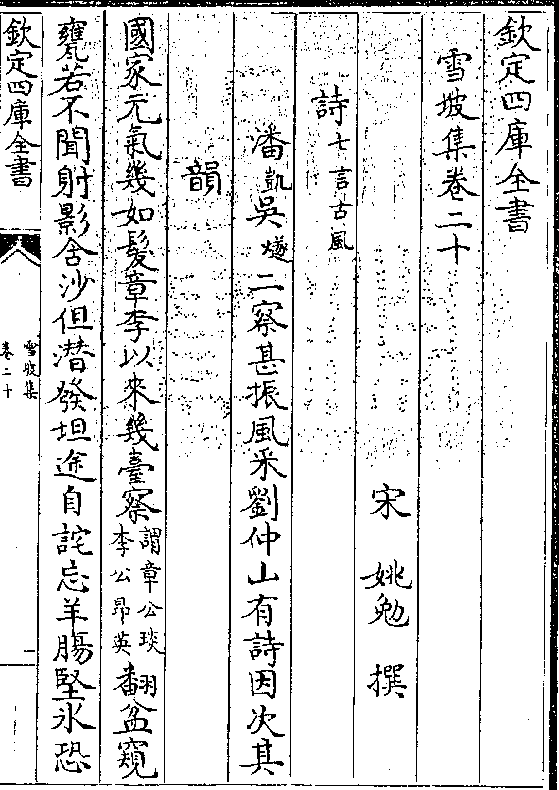 欽定四庫全書
雪坡集卷二十
宋 姚勉 撰
詩七言古風
潘凱吳燧二察甚振風采劉仲山有詩因次其
韻
國家元氣幾如髮章李以來幾臺察謂章公琰李公昂英翻盆窺
甕若不聞射影含沙但潛發坦途自詫忘羊腸堅氷恐
欽定四庫全書
雪坡集
卷二十
一